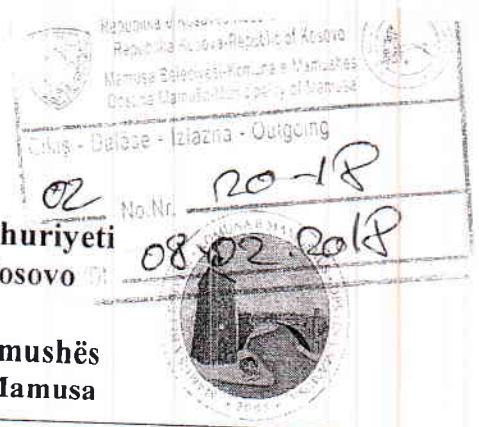 Republika Kosova-Republic of Kosovo
Mamuşa Belediyesi-Komuna e Mamushës
Opština Mamuša-Municipality of Mamusa
Çıkış - Dalëse - Izlazna - Outgoing
02 No.Nr. 20-18
08.02.2018
huriyeti
osovo
mushës
Mamusa